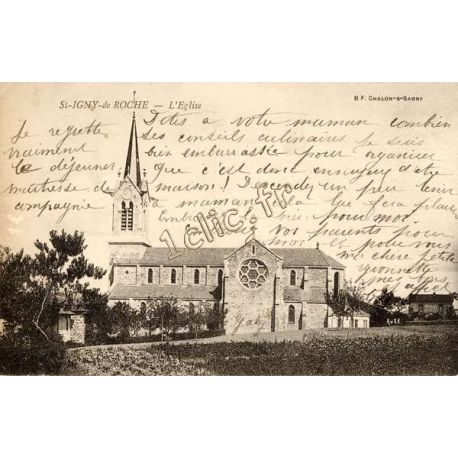 St-IGNY-de ROCHE — L'Eglise
B F, CHALON-S-SAONE
Dites à votre maman combien
Je regrette ses conseils culinaires Je suis
vraiment bien embarrassée pour organiser
ce déjeuner. Que c'est donc ennuyeux d'etre
maitresse de maison! Descendez un peu tenir
compagnie à maman. Ca me fera plaisir
pour moi.
vos parents pour
et pour vous
ma chère petite
Yvonnette
1clic.fr